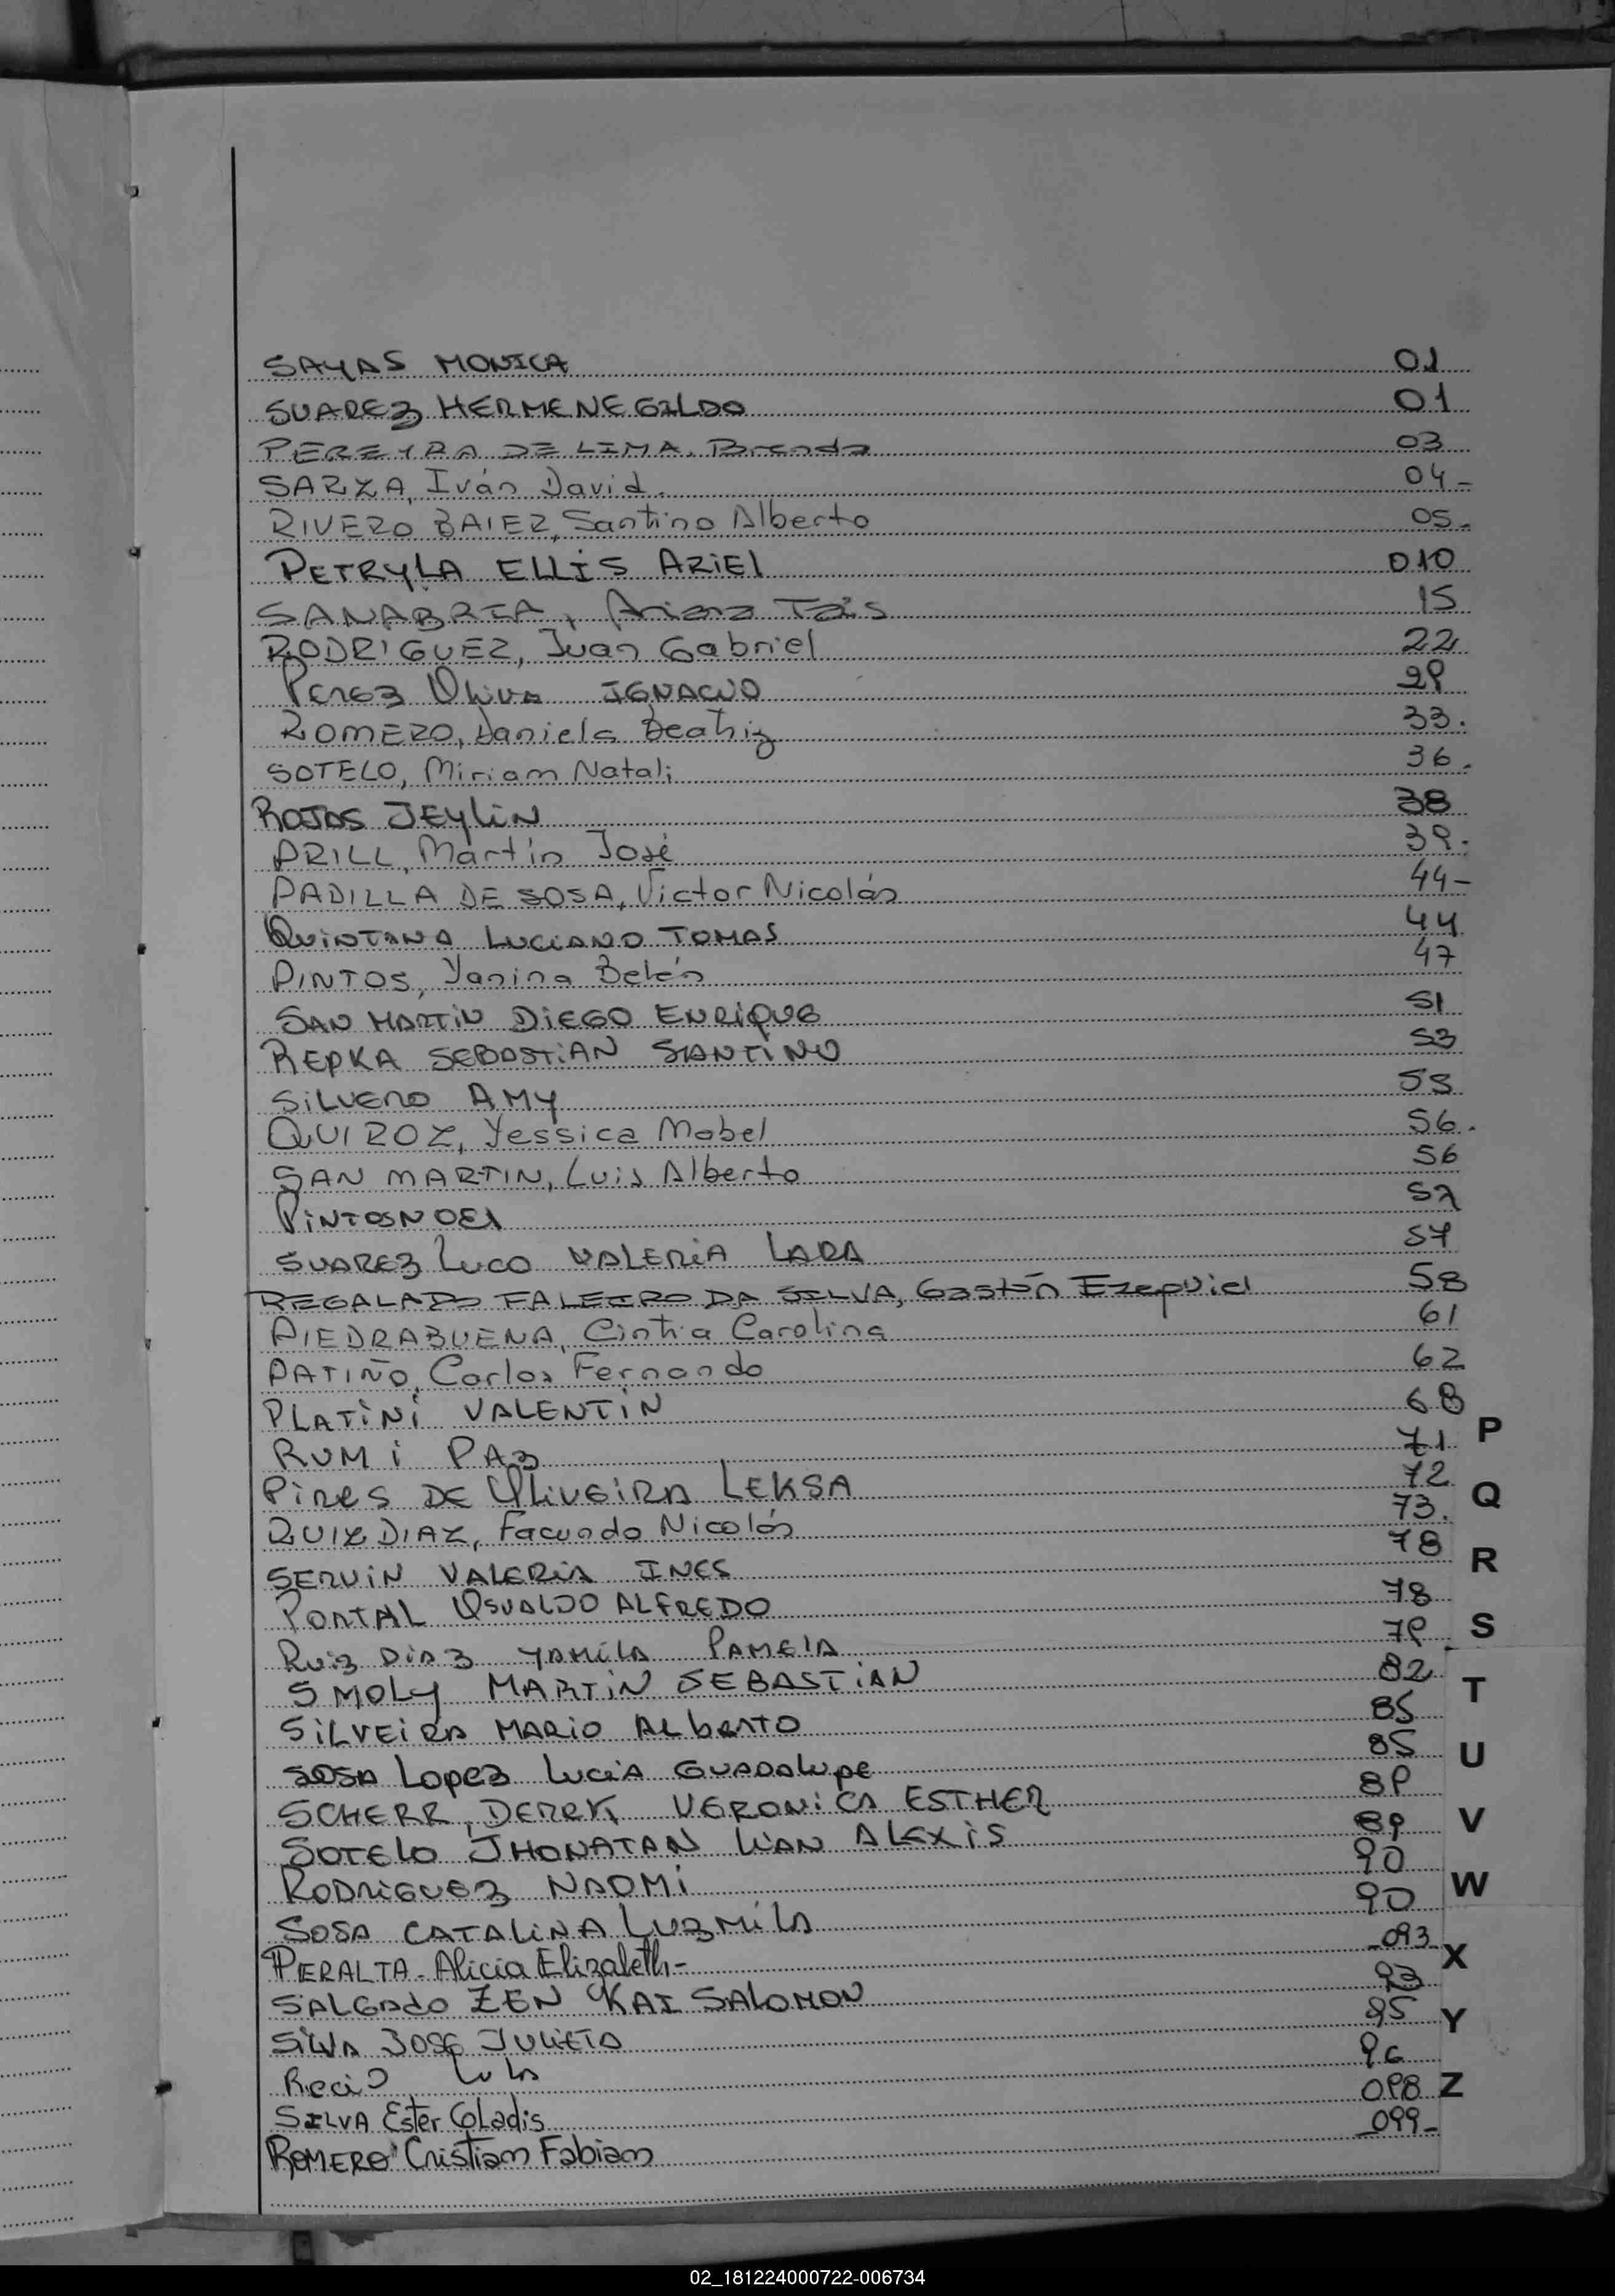 SAYAS MONICA 01
SUAREZ HERMENEGILDO 01
PEREYRA DE LIMA, Brenda 03
SARZA, Iván David. 04-
RIVERO BAIER, Santino Alberto 05.
PETRYLA ELLIS ARIEL 010
SANABRIA, Ariana Tais 15
RODRIGUEZ, Juan Gabriel 22
Perez Oliva IGNACIO 29
ROMERO, Daniela Beatriz 33.
SOTELO, Miriam Natali 36.
ROJAS JEYLIN 38
PRILL, Martín José 39.
PADILLA DE SOSA, Victor Nicolás 44-
QUINTANA LUCIANO TOMAS 44
PINTOS, Yanina Belén 47
SAN MARTIN DIEGO ENRIQUE 51
REPKA SEBASTIAN SANTINO 53
SILVERO AMY 55
QUIROZ, Yessica Mabel 56.
SAN MARTIN, Luis Alberto 56
PINTOS NOEL 57
SUAREZ LUCO VALERIA LARA 57
REGALADO FALEIRO DA SILVA, Gastón Ezequiel 58
PIEDRABUENA, Cintia Carolina 61
PATIÑO, Carlos Fernando 62
PLATINI VALENTIN 68
P
RUMI PAZ 71
PIRES DE OLIVEIRA LEKSA 72
Q
RUIZ DIAZ, Facundo Nicolás 73.
SERVIN VALERIA INES 78
R
PORTAL OSVALDO ALFREDO 78
S
RUIZ DIAZ YAMILA PAMELA 79
SMOLY MARTIN SEBASTIAN 82
T
SILVEIRA MARIO ALBERTO 85
SOSA LOPEZ LUCIA GUADALUPE 85
U
SCHERR, DERRK VERONICA ESTHER 89
SOTELO JHONATAN LIAN ALEXIS 89
V
RODRIGUEZ NAOMI 90
W
SOSA CATALINA LUZMILA 90
PERALTA- Alicia Elizabeth- 093
X
SALGADO ZEN KAI SALOMON 93
SILVA JOSE JULIETA 95
Y
Recio Lula 96
SILVA Ester Gladis 098
Z
ROMERO Cristiam Fabiam 099-
02_181224000722-006734